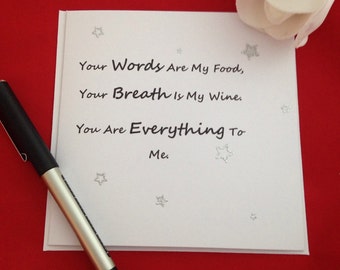 Your Words Are My Food,
Your Breath Is My Wine.
You Are Everything To
Me.